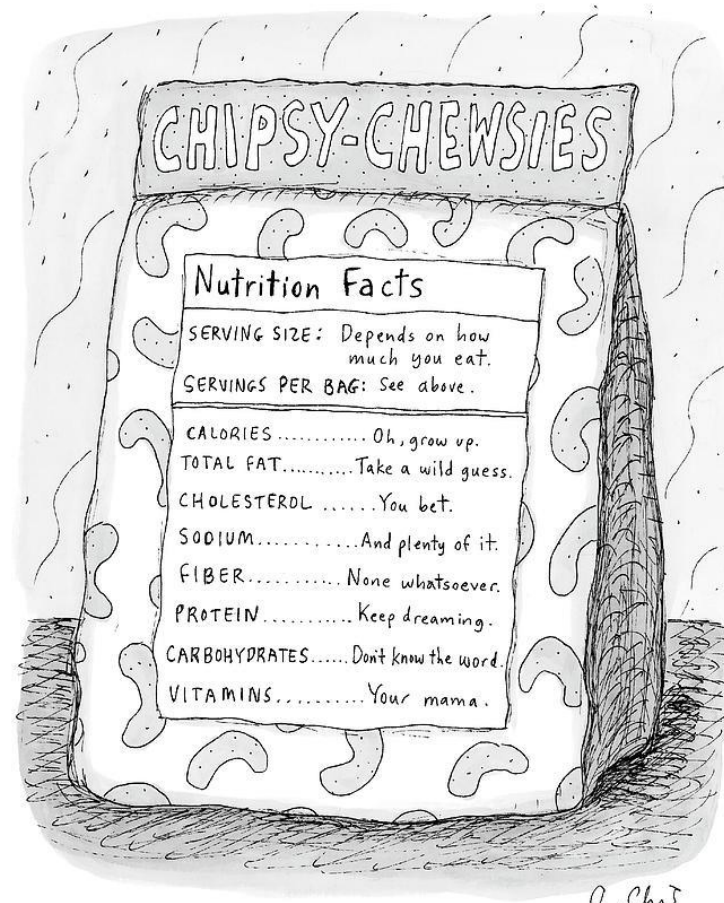 CHIPSY-CHEWSIES
Nutrition Facts
SERVING SIZE: Depends on how
much you eat.
SERVINGS PER BAG: See above.
CALORIES............ Oh, grow up.
TOTAL FAT..........Take a wild guess.
CHOLESTEROL ......You bet.
SODIUM............And plenty of it.
FIBER........... None whatsoever.
PROTEIN...........Keep dreaming.
CARBOHYDRATES......Don't know the word.
VITAMINS...........Your mama.